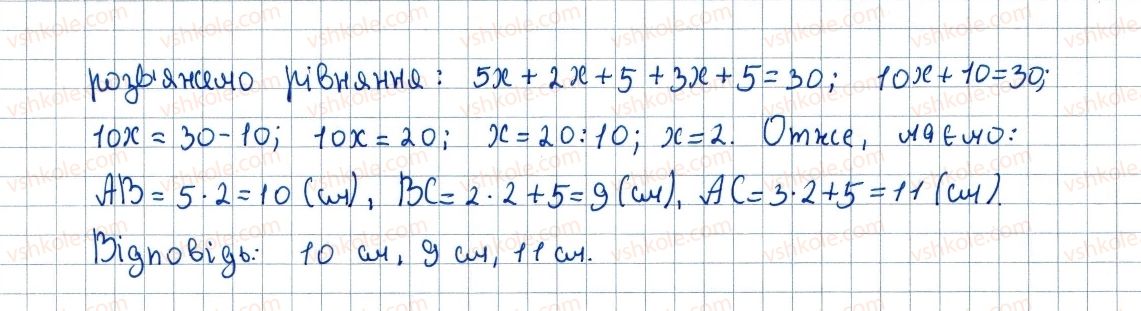 розв'яжемо рівняння: 5x + 2x + 5 + 3x + 5 = 30; 10x + 10 = 30;
10x = 30 - 10; 10x = 20; x = 20 : 10; x = 2. Отже, маємо:
AB = 5 · 2 = 10 (см), BC = 2 · 2 + 5 = 9 (см), AC = 3 · 2 + 5 = 11 (см).
Відповідь: 10 см, 9 см, 11 см.